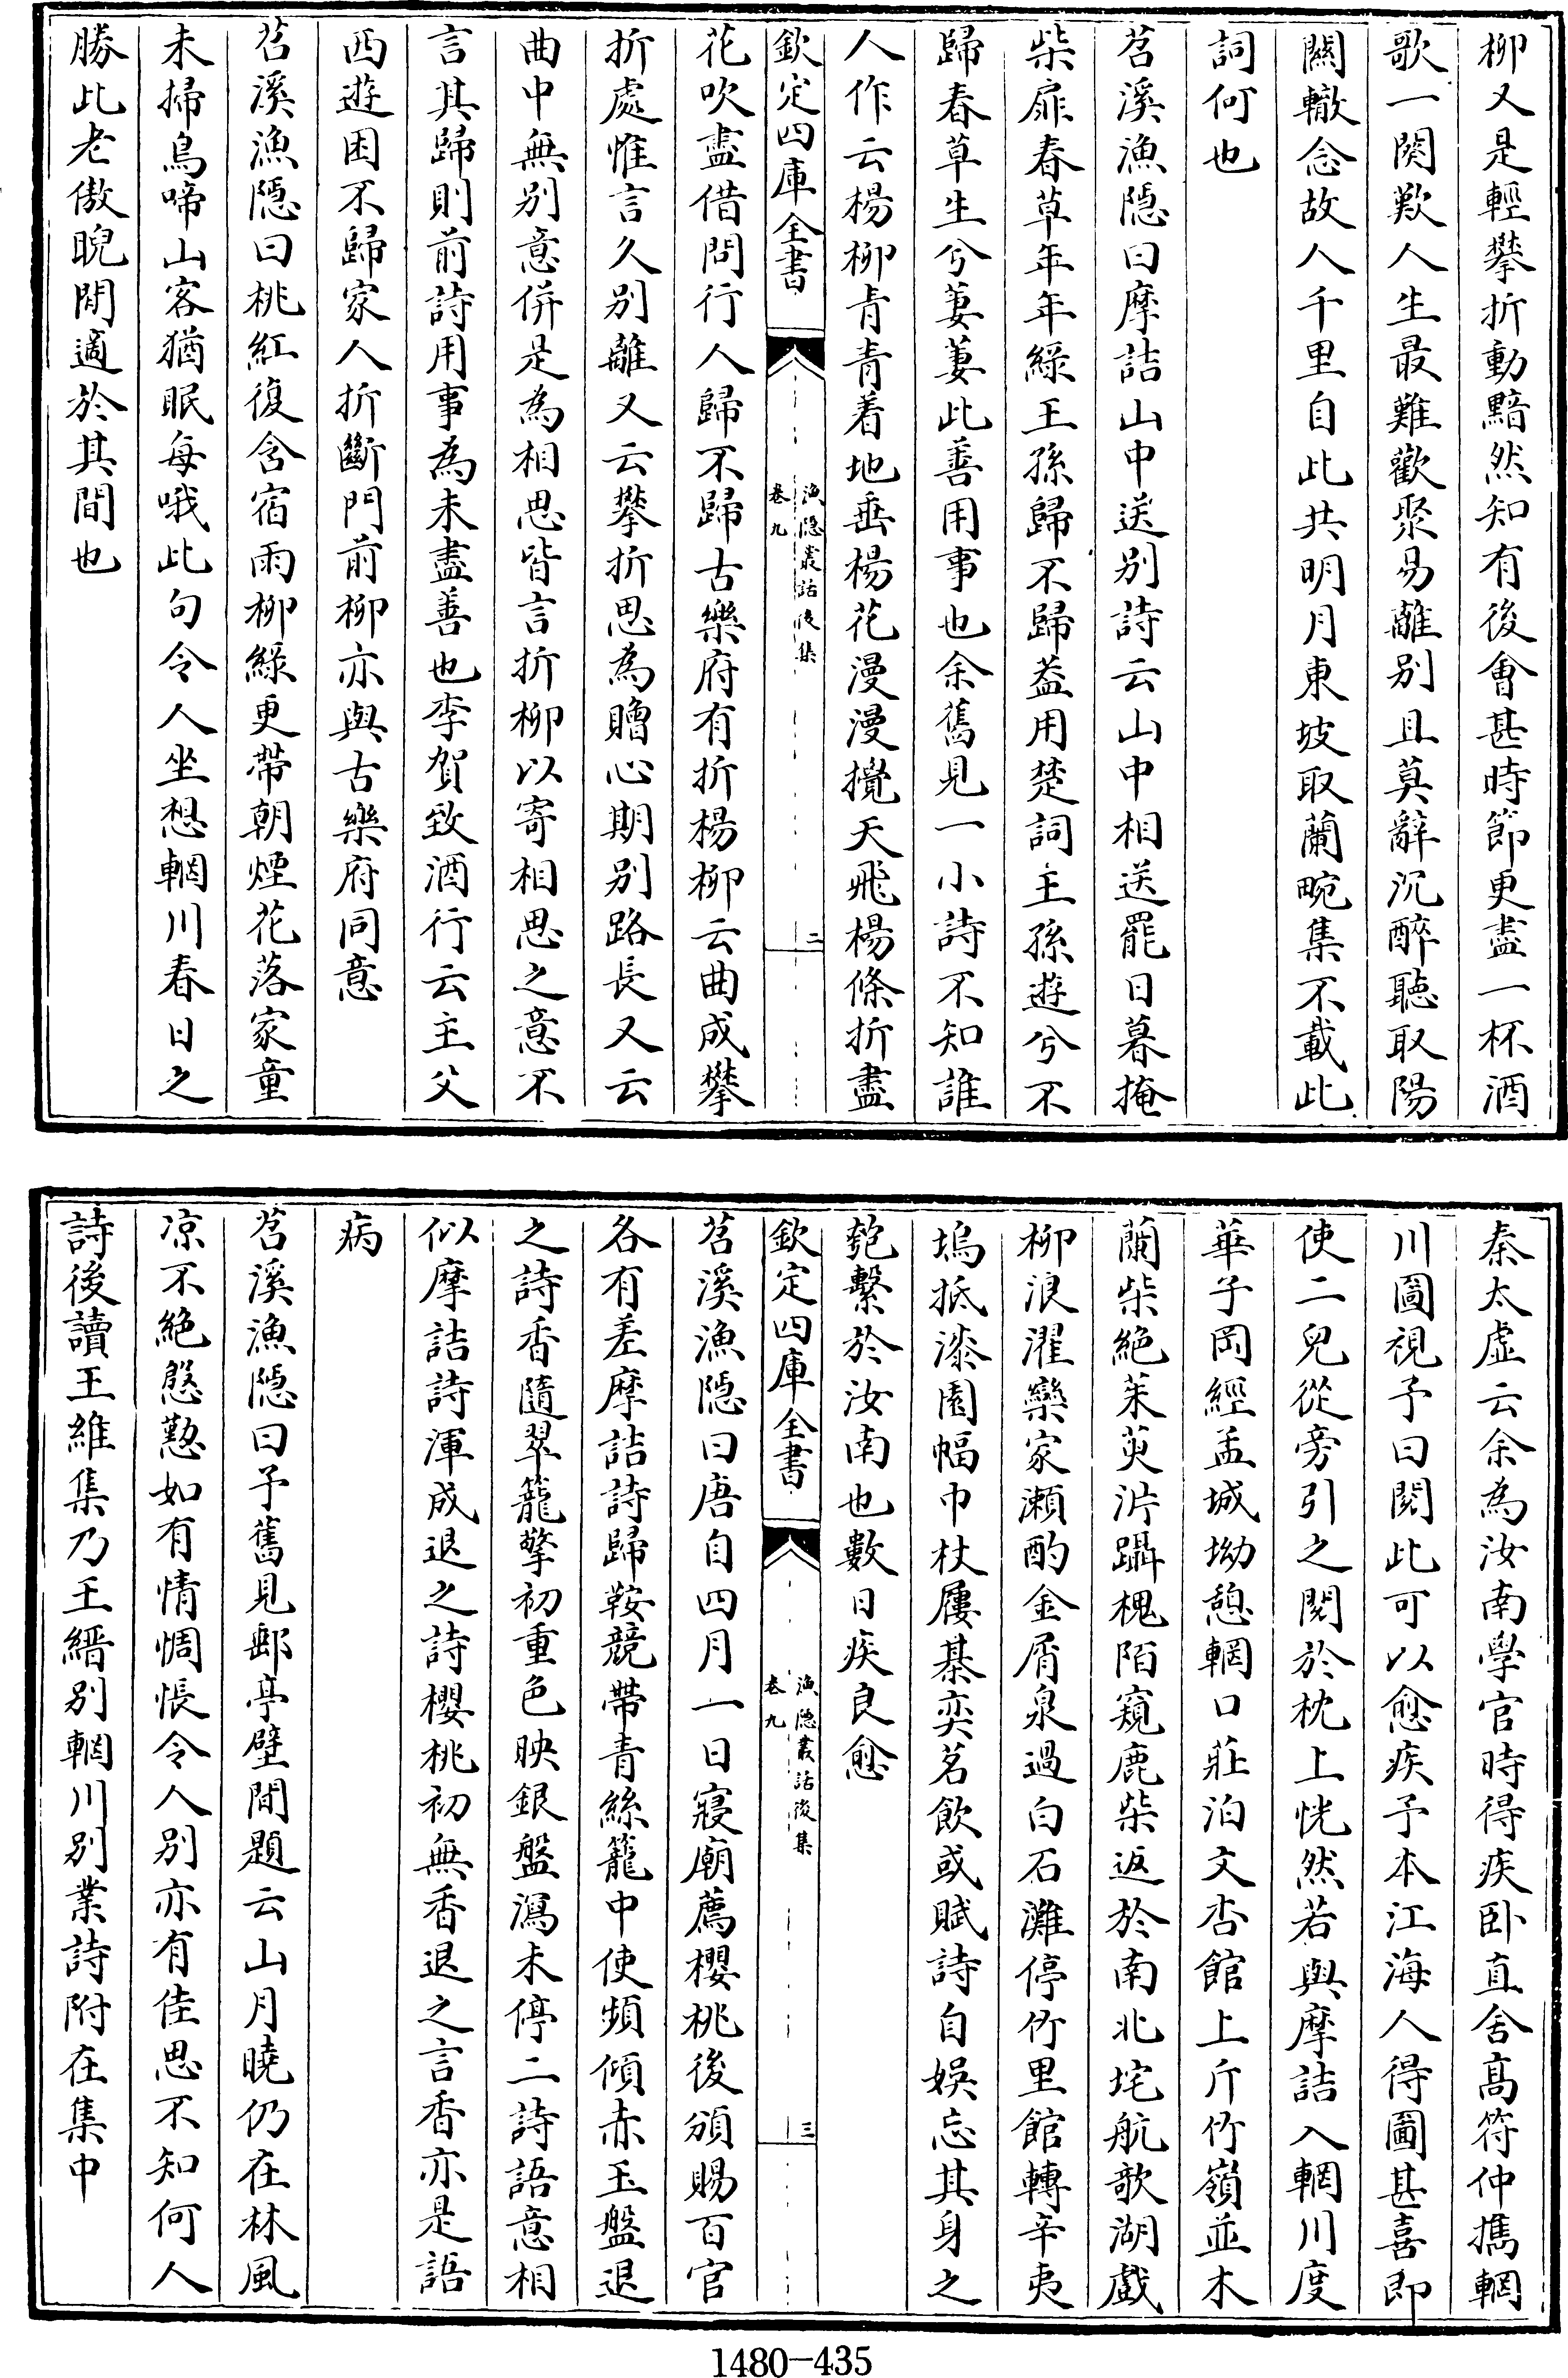 柳又是輕攀折動黯然知有後會甚時節更盡一杯酒
歌一闋歎人生最難歡聚易離別且莫辭沉醉聽取陽
關轍念故人千里自此共明月東坡取蘭畹集不載此
詞何也
苕溪漁隠曰摩詰山中送别詩云山中相送罷日暮掩
柴扉春草年年緑王孫歸不歸葢用楚詞王孫遊兮不
歸春草生兮萋萋此善用事也余舊見一小詩不知誰
人作云楊柳青青着地垂楊花漫漫攪天飛楊條折盡
欽定四庫全書
漁隠叢話後集
卷九
二
花吹盡借問行人歸不歸古樂府有折楊柳云曲成攀
折處惟言久别離又云攀折思為贈心期别路長又云
曲中無别意併是為相思皆言折柳以寄相思之意不
言其歸則前詩用事為未盡善也李賀致酒行云主父
西遊困不歸家人折斷門前柳亦與古樂府同意
苕溪漁隠曰桃紅復含宿雨柳緑更帶朝煙花落家童
未掃鳥啼山客猶眠每哦此句令人坐想輞川春日之
勝此老傲睨閒適於其間也
秦太虚云余為汝南學官時得疾卧直舍高符仲攜輞
川圖視予曰閱此可以愈疾予本江海人得圖甚喜即
使二兒從旁引之閱於枕上恍然若與摩詰入輞川度
華子岡經孟城坳憩輞口莊泊文杏館上斤竹嶺並木
蘭柴絶茱萸沜躡槐陌窺鹿柴返於南北垞航欹湖戲
柳浪濯欒家瀬酌金屑泉過白石灘停竹里館轉辛夷
塢抵漆園幅巾杖屨棊奕茗飲或賦詩自娱忘其身之
匏繫於汝南也數日疾良愈
欽定四庫全書
漁隠叢話後集
卷九
三
苕溪漁隠曰唐自四月一日寢廟薦櫻桃後頒賜百官
各有差摩詰詩歸鞍競帶青絲籠中使頻傾赤玉盤退
之詩香隨翠籠擎初重色映銀盤瀉未停二詩語意相
似摩詰詩渾成退之詩櫻桃初無香退之言香亦是語
病
苕溪漁隠曰予舊見郵亭壁間題云山月曉仍在林風
凉不絶慇懃如有情惆悵令人别亦有佳思不知何人
詩後讀王維集乃王縉别輞川别業詩附在集中
1480-435